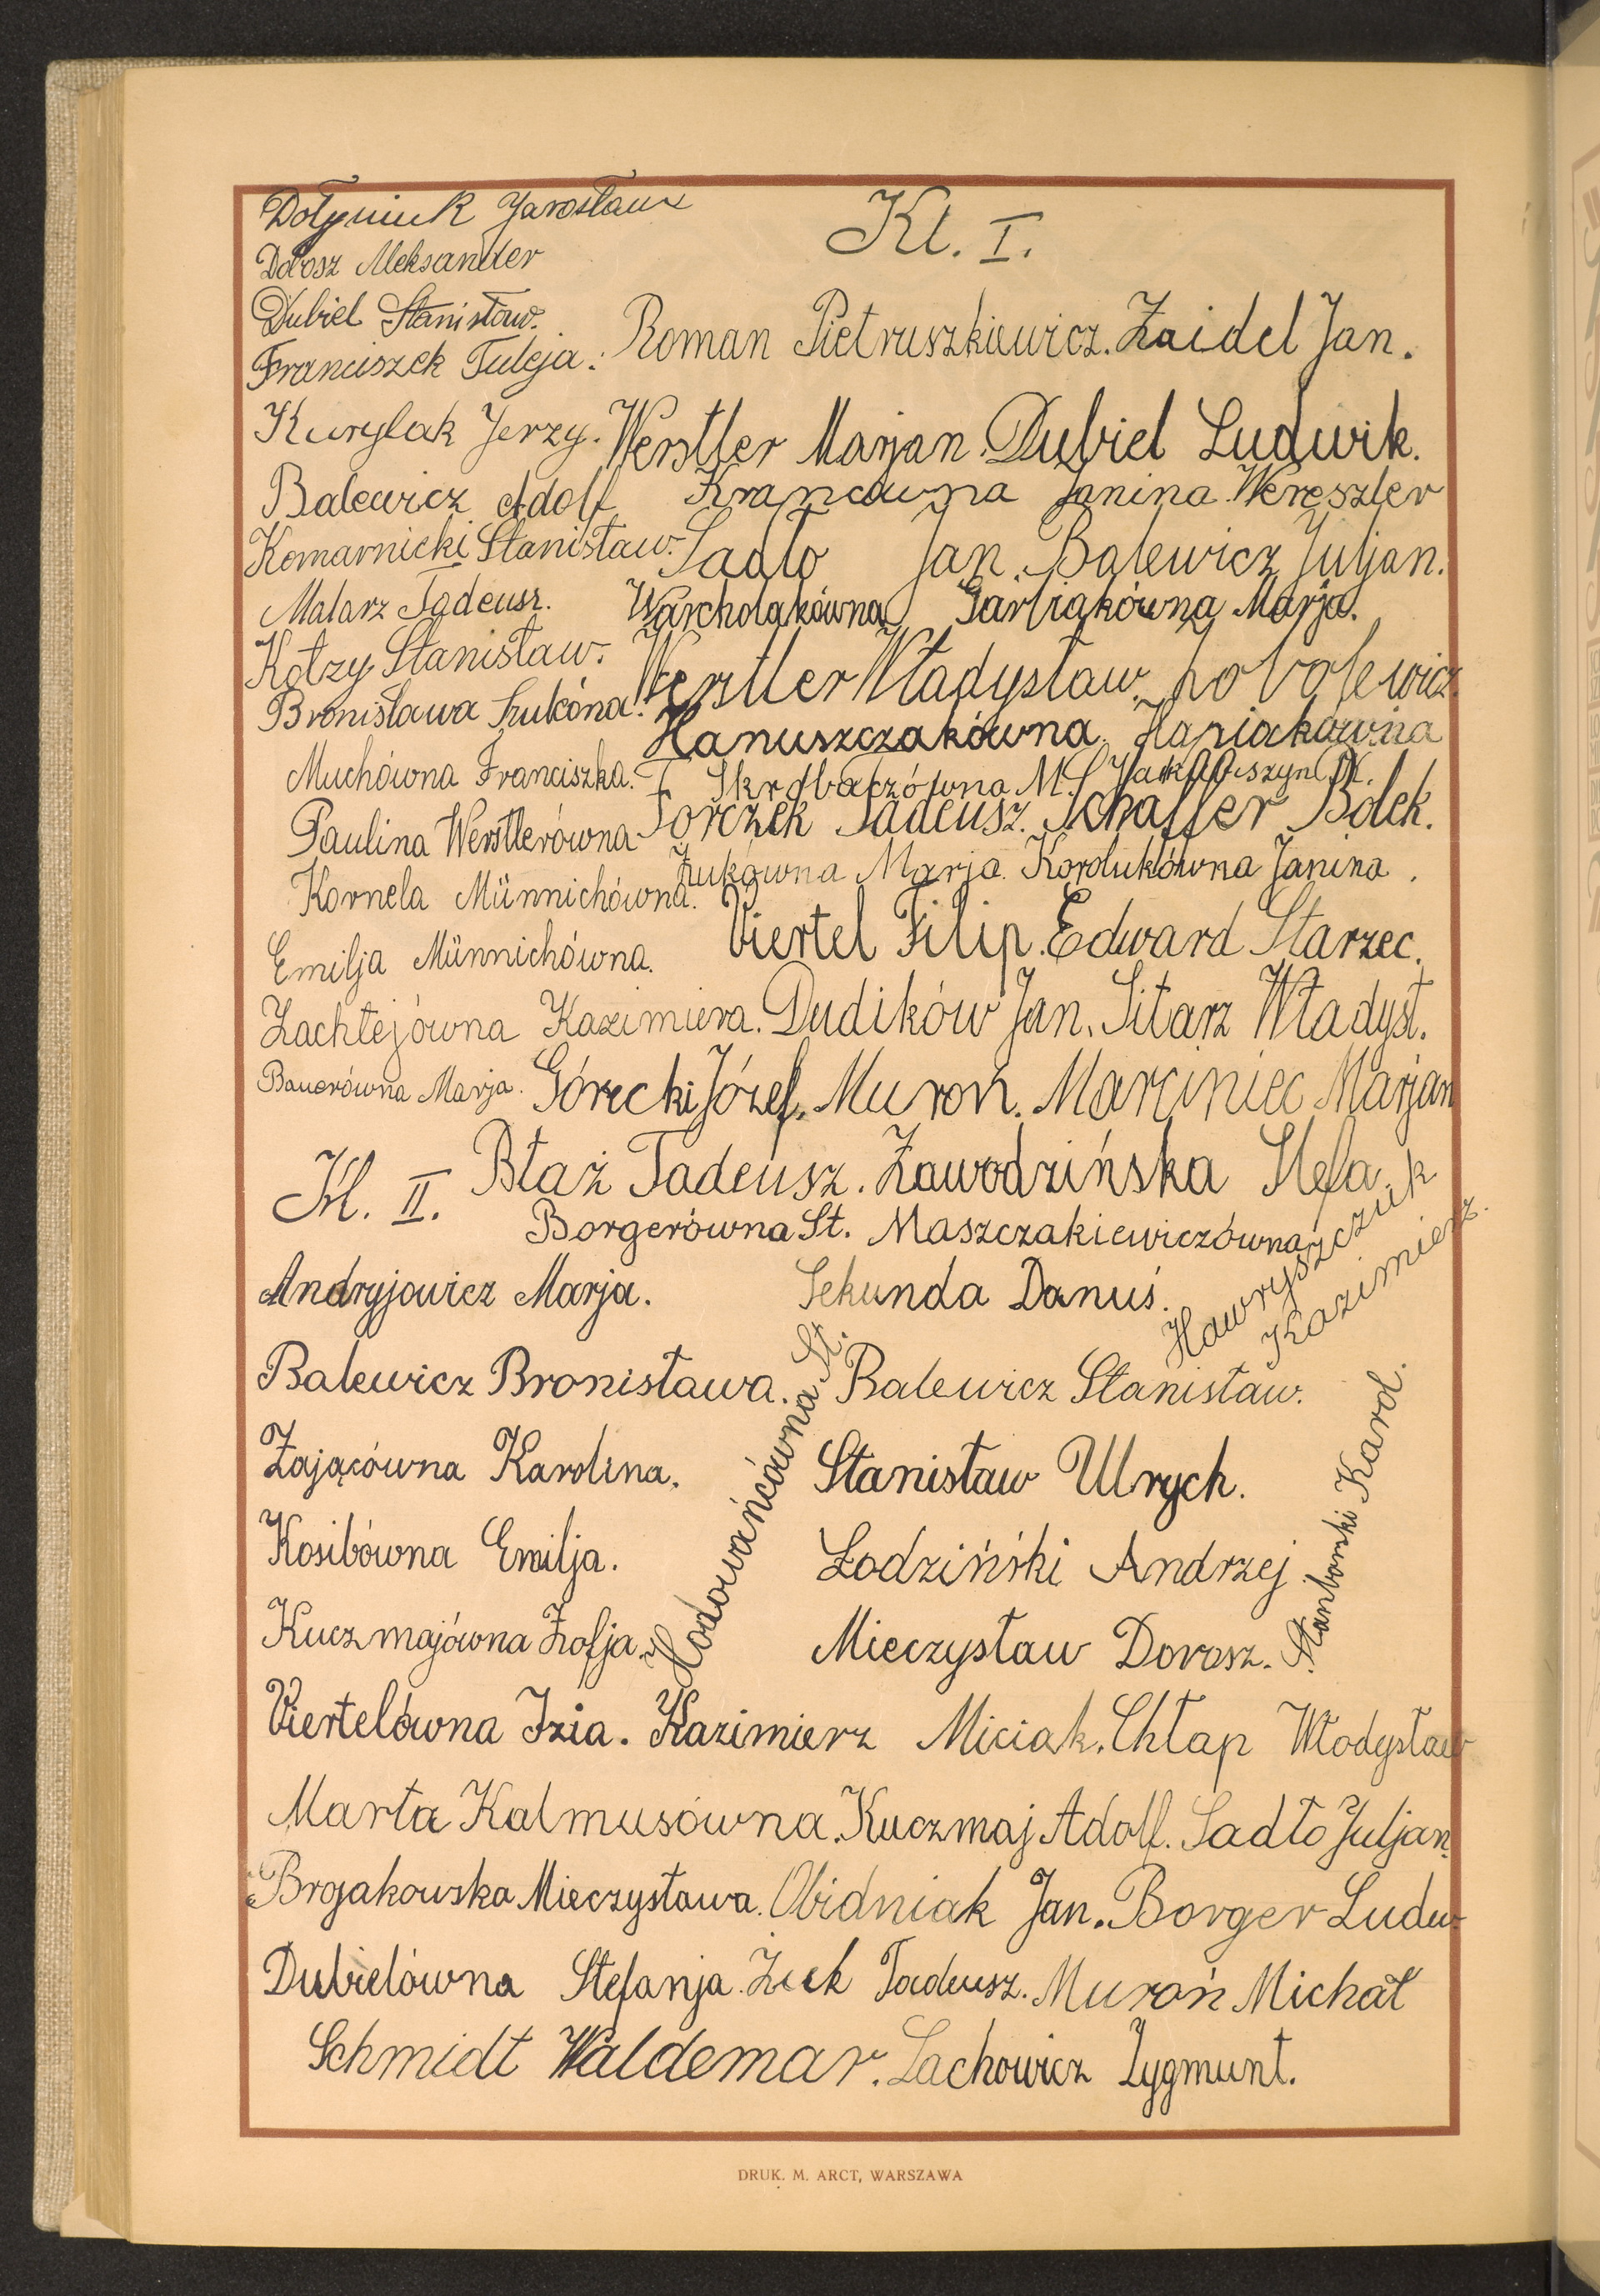 Dołyniuk Jarosław
Kl. I.
Dorosz Aleksander
Dubiel Stanisław.
Franciszek Tuleja.
Roman Pietruszkiewicz. Zaidel Jan.
Kurylak Jerzy.
Werstler Marjan. Dubiel Ludwik.
Balewicz Adolf
Krancówna Janina Wereszler
Komarnicki Stanisław.
Sadło Jan. Balewicz Juljan.
Malarz Tadeusz.
Warchołakówna Garliakówna Marja.
Kotzy Stanisław.
Werstler Władysław.
Bronisława
Hanuszczakówna. Hapiakówna
Muchówna Franciszka.
M.
Torczek Tadeusz. Schaffer Bolek.
Paulina Werstlerówna
Żukówna Marja. Korolukówna Janina.
Kornela Münnichówna.
Viertel Filip. Edward Starzec.
Emilja Münnichówna.
Zachłejówna Kazimiera. Dudików Jan. Sitarz Władysł.
Bauerówna Marja. Górecki Józef. Muroń. Marciniec Marjan
Kl. II.
Błaż Tadeusz. Zawodzińska Stefa.
Borgerówna St. Maszczakiewiczówna
Hawryszczuk
Kazimierz.
Andryjowicz Marja. Sekunda Danuś.
Balewicz Bronisława. Balewicz Stanisław.
Hodowańcówna St.
Zającówna Karolina. Stanisław Ulrych.
Stanborski Karol.
Kosibówna Emilja. Łodziński Andrzej
Kuczmajówna Zofja. Mieczysław Dorosz.
Viertelówna Izia. Kazimierz Miciak. Chłap Włodysław
Marta Kalmusówna. Kuczmaj Adolf. Sadło Juljan.
Brojakowska Mieczysława. Obidniak Jan. Borger Ludw.
Dubielówna Stefanja. Żuk Tadeusz. Muroń Michał
Schmidt Waldemar. Lachowicz Zygmunt.
DRUK. M. ARCT, WARSZAWA